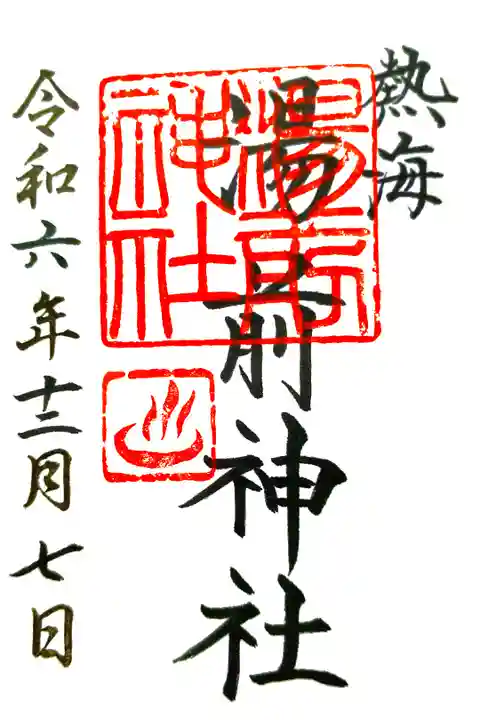 熱海
湯前神社
湯前神社
令和六年十二月七日